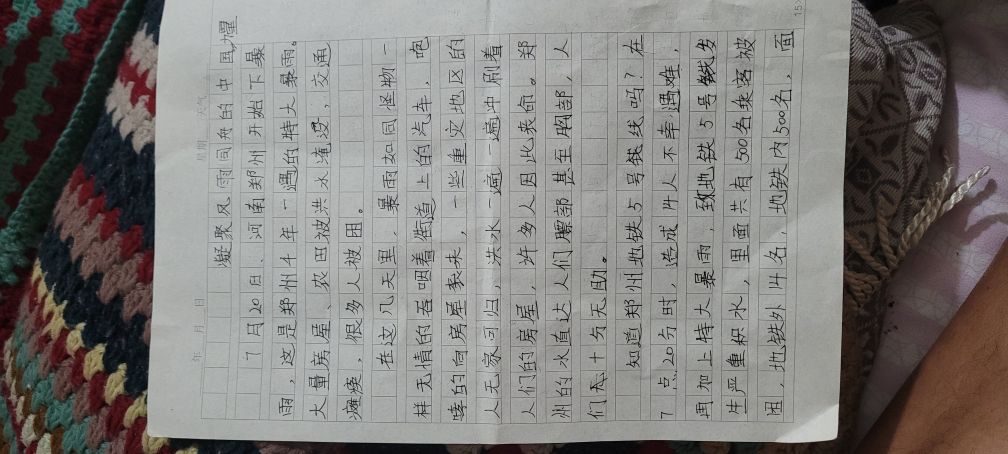 年 月 日 星期 天气
凝聚风雨同舟的中国力量
7月20日、河南郑州开始下暴
雨，这是郑州千年一遇的特大暴雨。
大量房屋、农田被洪水淹没，交通
瘫痪，很多人被困。
在这几天里，暴雨如同怪物一
样无情的吞咽着街道上的汽车，咆
哮的向房屋袭来，一些重灾地区的
人无家可归，洪水一遍一遍冲刷着
人们的房屋，许多人因此丧命。郑
州的水直达人们腰部甚至胸部，人
们十分无助。
知道郑州地铁5号线吗？在
7点20分时，造成14人不幸遇难，
再加上特大暴雨，致地铁5号线发
生严重积水，里面共有500名乘客被
困，地铁外14名，地铁内500名，面